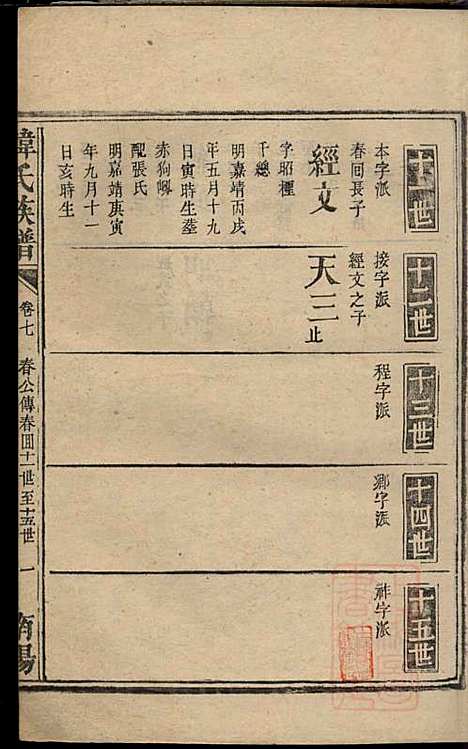 十一世
本字派
春囘長子
經文
字昭檀
千總
明嘉靖丙戌
年五月十九
日寅時生塟
赤狗𡶶
配張氏
明嘉靖庚寅
年九月十一
日亥時生
十二世
接字派
經文之子
天三止
十三世
程字派
十四世
鄭字派
十五世
祚字派
韓氏族譜
卷七
春公傳春囘十一世至十五世
一
南陽